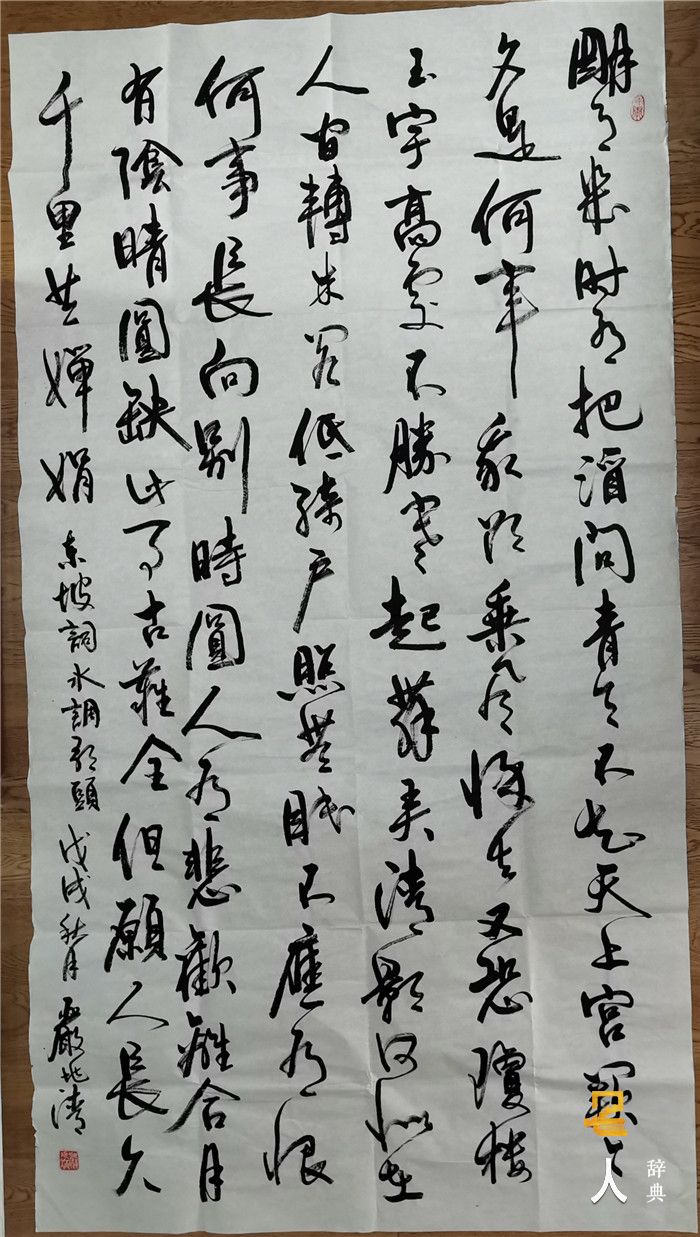 明月幾时有把酒問青天不知天上宮闕今
夕是何年我欲乘風歸去又恐瓊楼
玉宇高處不勝寒起舞弄清影何似在
人间轉朱阁低綺户照無眠不應有恨
何事長向别時圓人有悲歡離合月
有陰晴圓缺此事古難全但願人長久
千里共嬋娟 東坡詞水調歌頭 戊戌秋月 嚴兆清
人 辞典